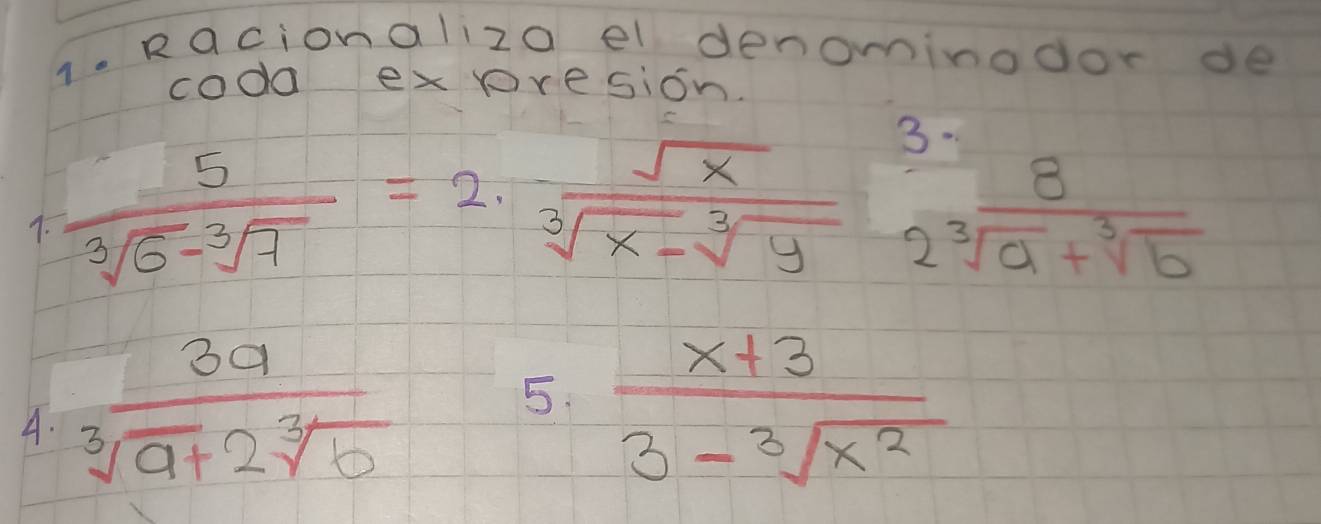 1. Racionaliza el denominador de
cada expresión.
1. 5/(∛6 - ∛7) = 2. √x/(∛x - ∛y) 3. 8/(2∛a + ∛b)
4. 3a/(∛a + 2∛b) 5. (x+3)/(3 - ∛x²)